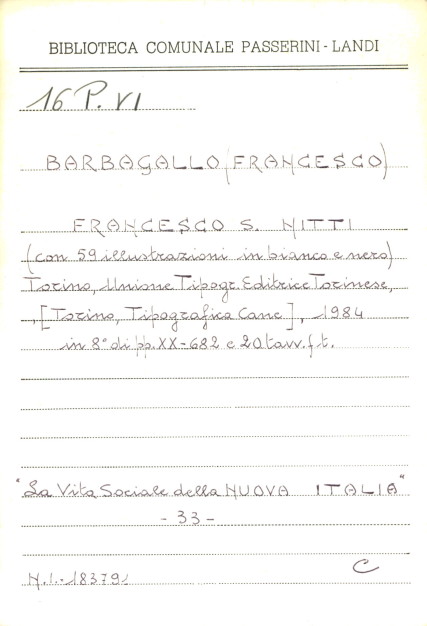 BIBLIOTECA COMUNALE PASSERINI - LANDI
16 P. VI
BARBAGALLO (FRANCESCO)
FRANCESCO S. NITTI
(con 59 illustrazioni in bianco e nero)
Torino, Unione Tipogr. Editrice Torinese,
, [Torino, Tipografica Cane], 1984
in 8° di pp. XX-682 e 20 tavv. f.t.
"La Vita Sociale della NUOVA ITALIA"
- 33 -
N.I.-183791
C